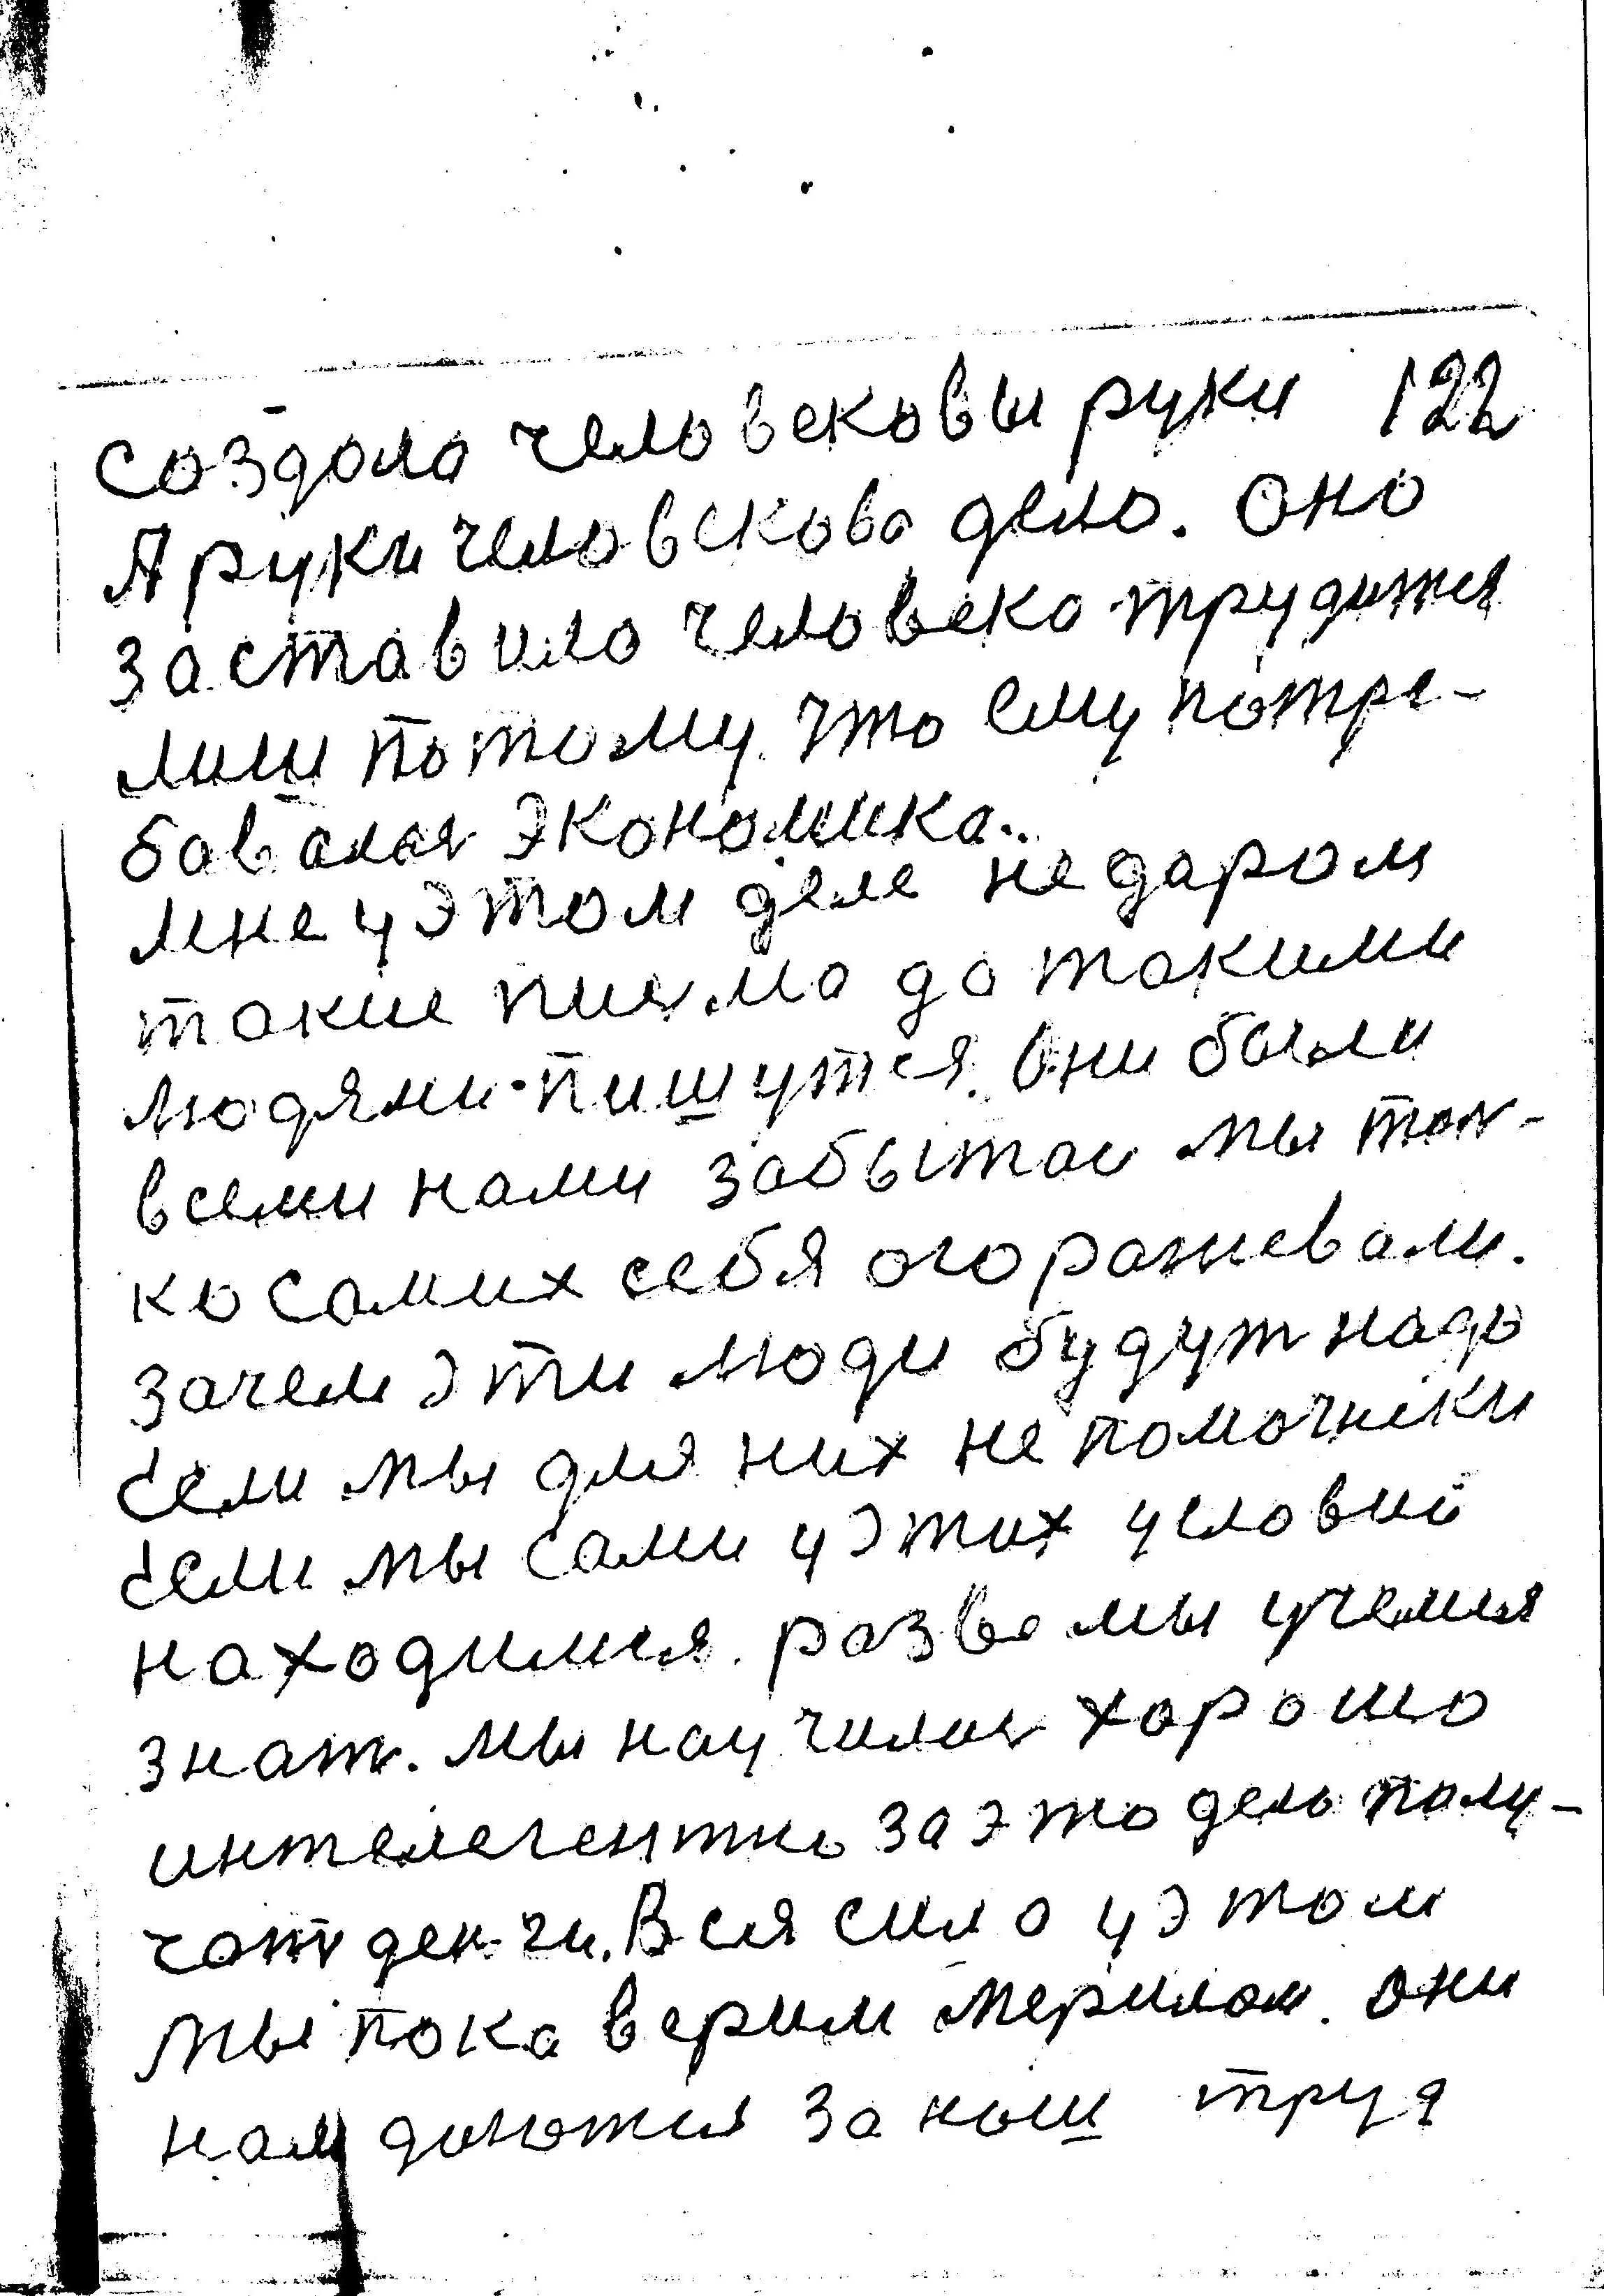 создала человековы руки 122
А руки человекова дело. Оно
заставило человека трудится
лиш потому что ему потре-
бавалас экономика..
мне у этом деле не даром
такие писма да такими
людями пишутся. Они были
всеми нами забытаи мы тол-
ко самих себя огораживали.
зачем эти люди будут надо
если мы для них не помочники
если мы сами у этих условий
находимся. разве мы учемся
знат. мы научилис хорошо
интелегентно за это дело полу-
чат денги. Вся сила у этом
мы пока верим мерилом. они
нам даются за наш труд